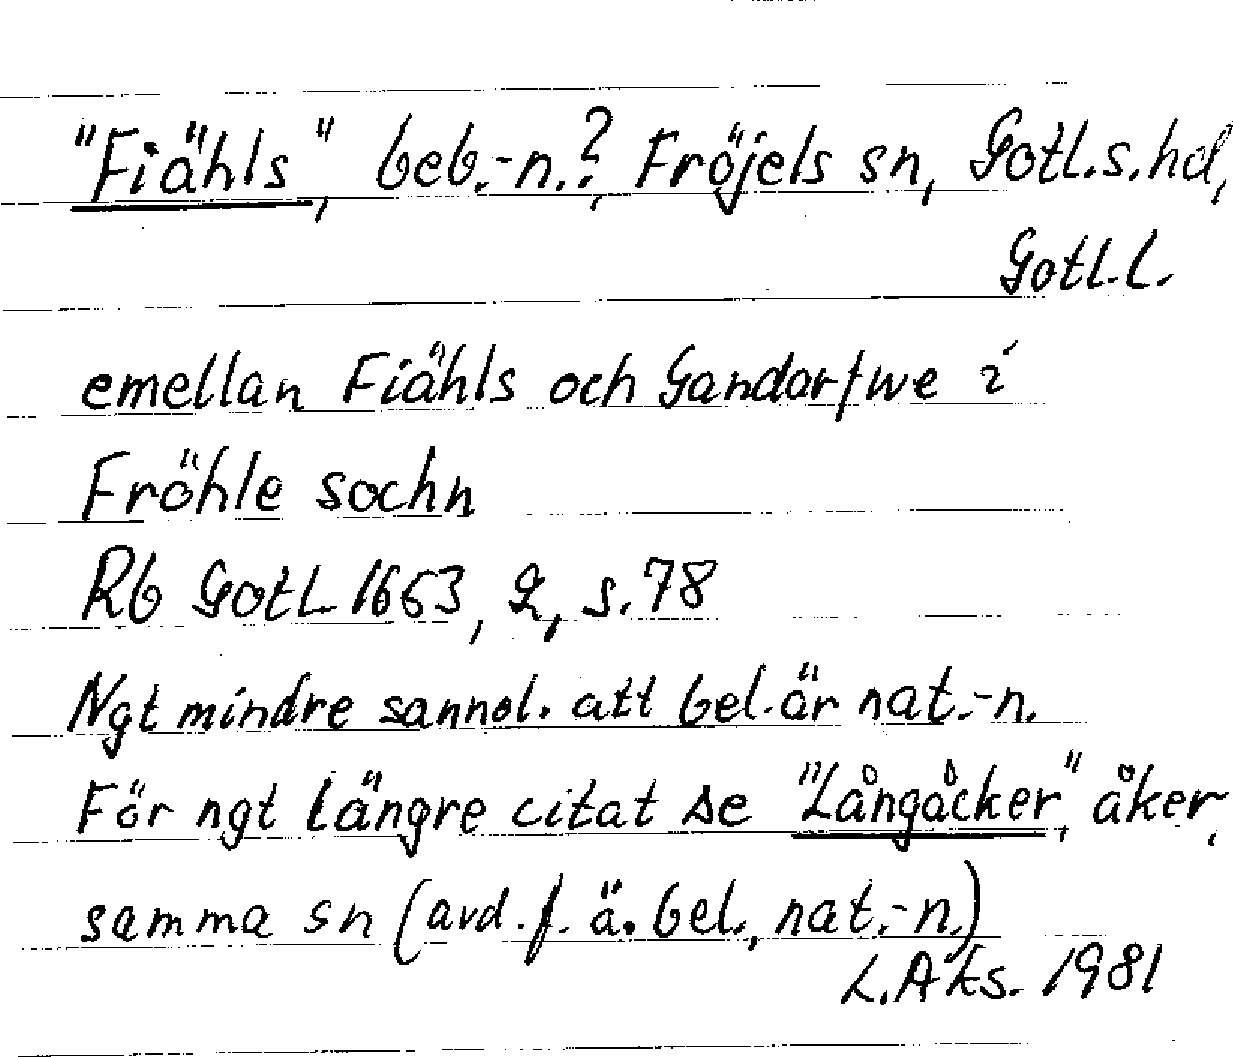 "Fiähls", beb.-n.? Fröjels sn, Gotl.s.hd,
Gotl.l.
emellan Fiähls och Gandarfwe i
Fröhle sochn
Rb GotL 1663, 2, s. 78
Ngt mindre sannol. att bel. är nat.-n.
För ngt längre citat se "Långåcker", åker,
samma sn (avd. f. ä. bel., nat.-n.)
L. Aks. 1981